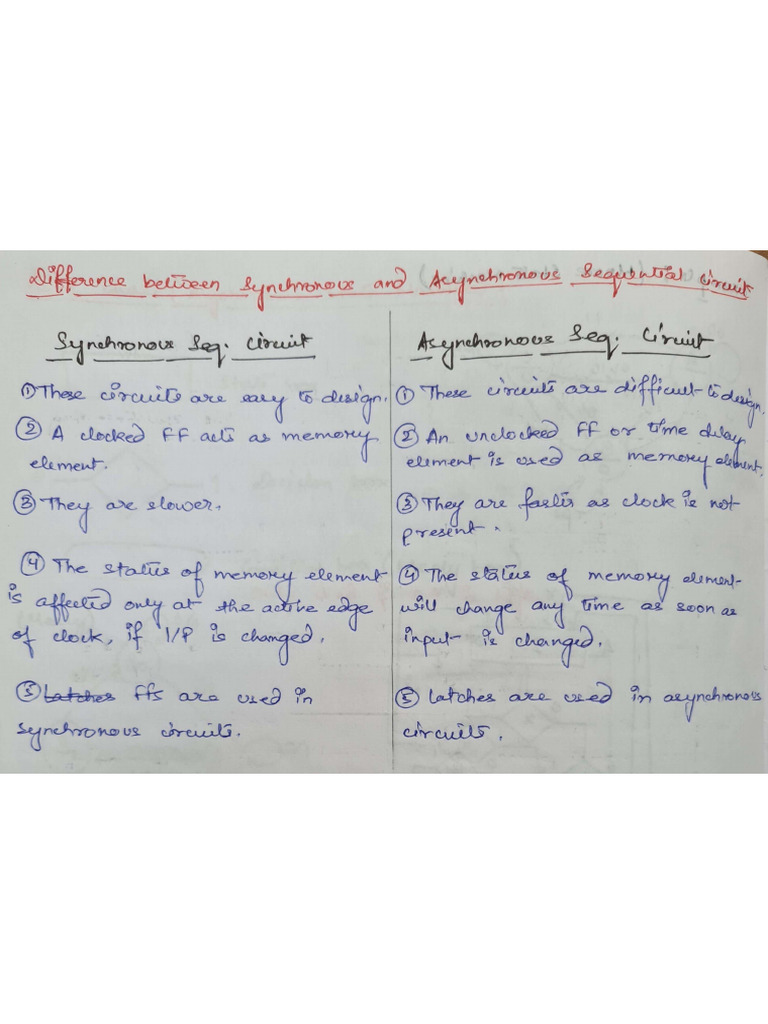 Difference between Synchronous and Asynchronous Sequential Circuit
Synchronous Seq. Circuit
① These circuits are easy to design.
② A clocked FF acts as memory
element.
③ They are slower.
④ The status of memory element
is affected only at the active edge
of clock, if I/P is changed.
⑤ Latches FFs are used in
synchronous circuits.
Asynchronous Seq. Circuit
① These circuits are difficult to design.
② An unclocked FF or time delay
element is used as memory element.
③ They are faster as clock is not
present.
④ The status of memory element
will change any time as soon as
input is changed.
⑤ Latches are used in asynchronous
circuits.